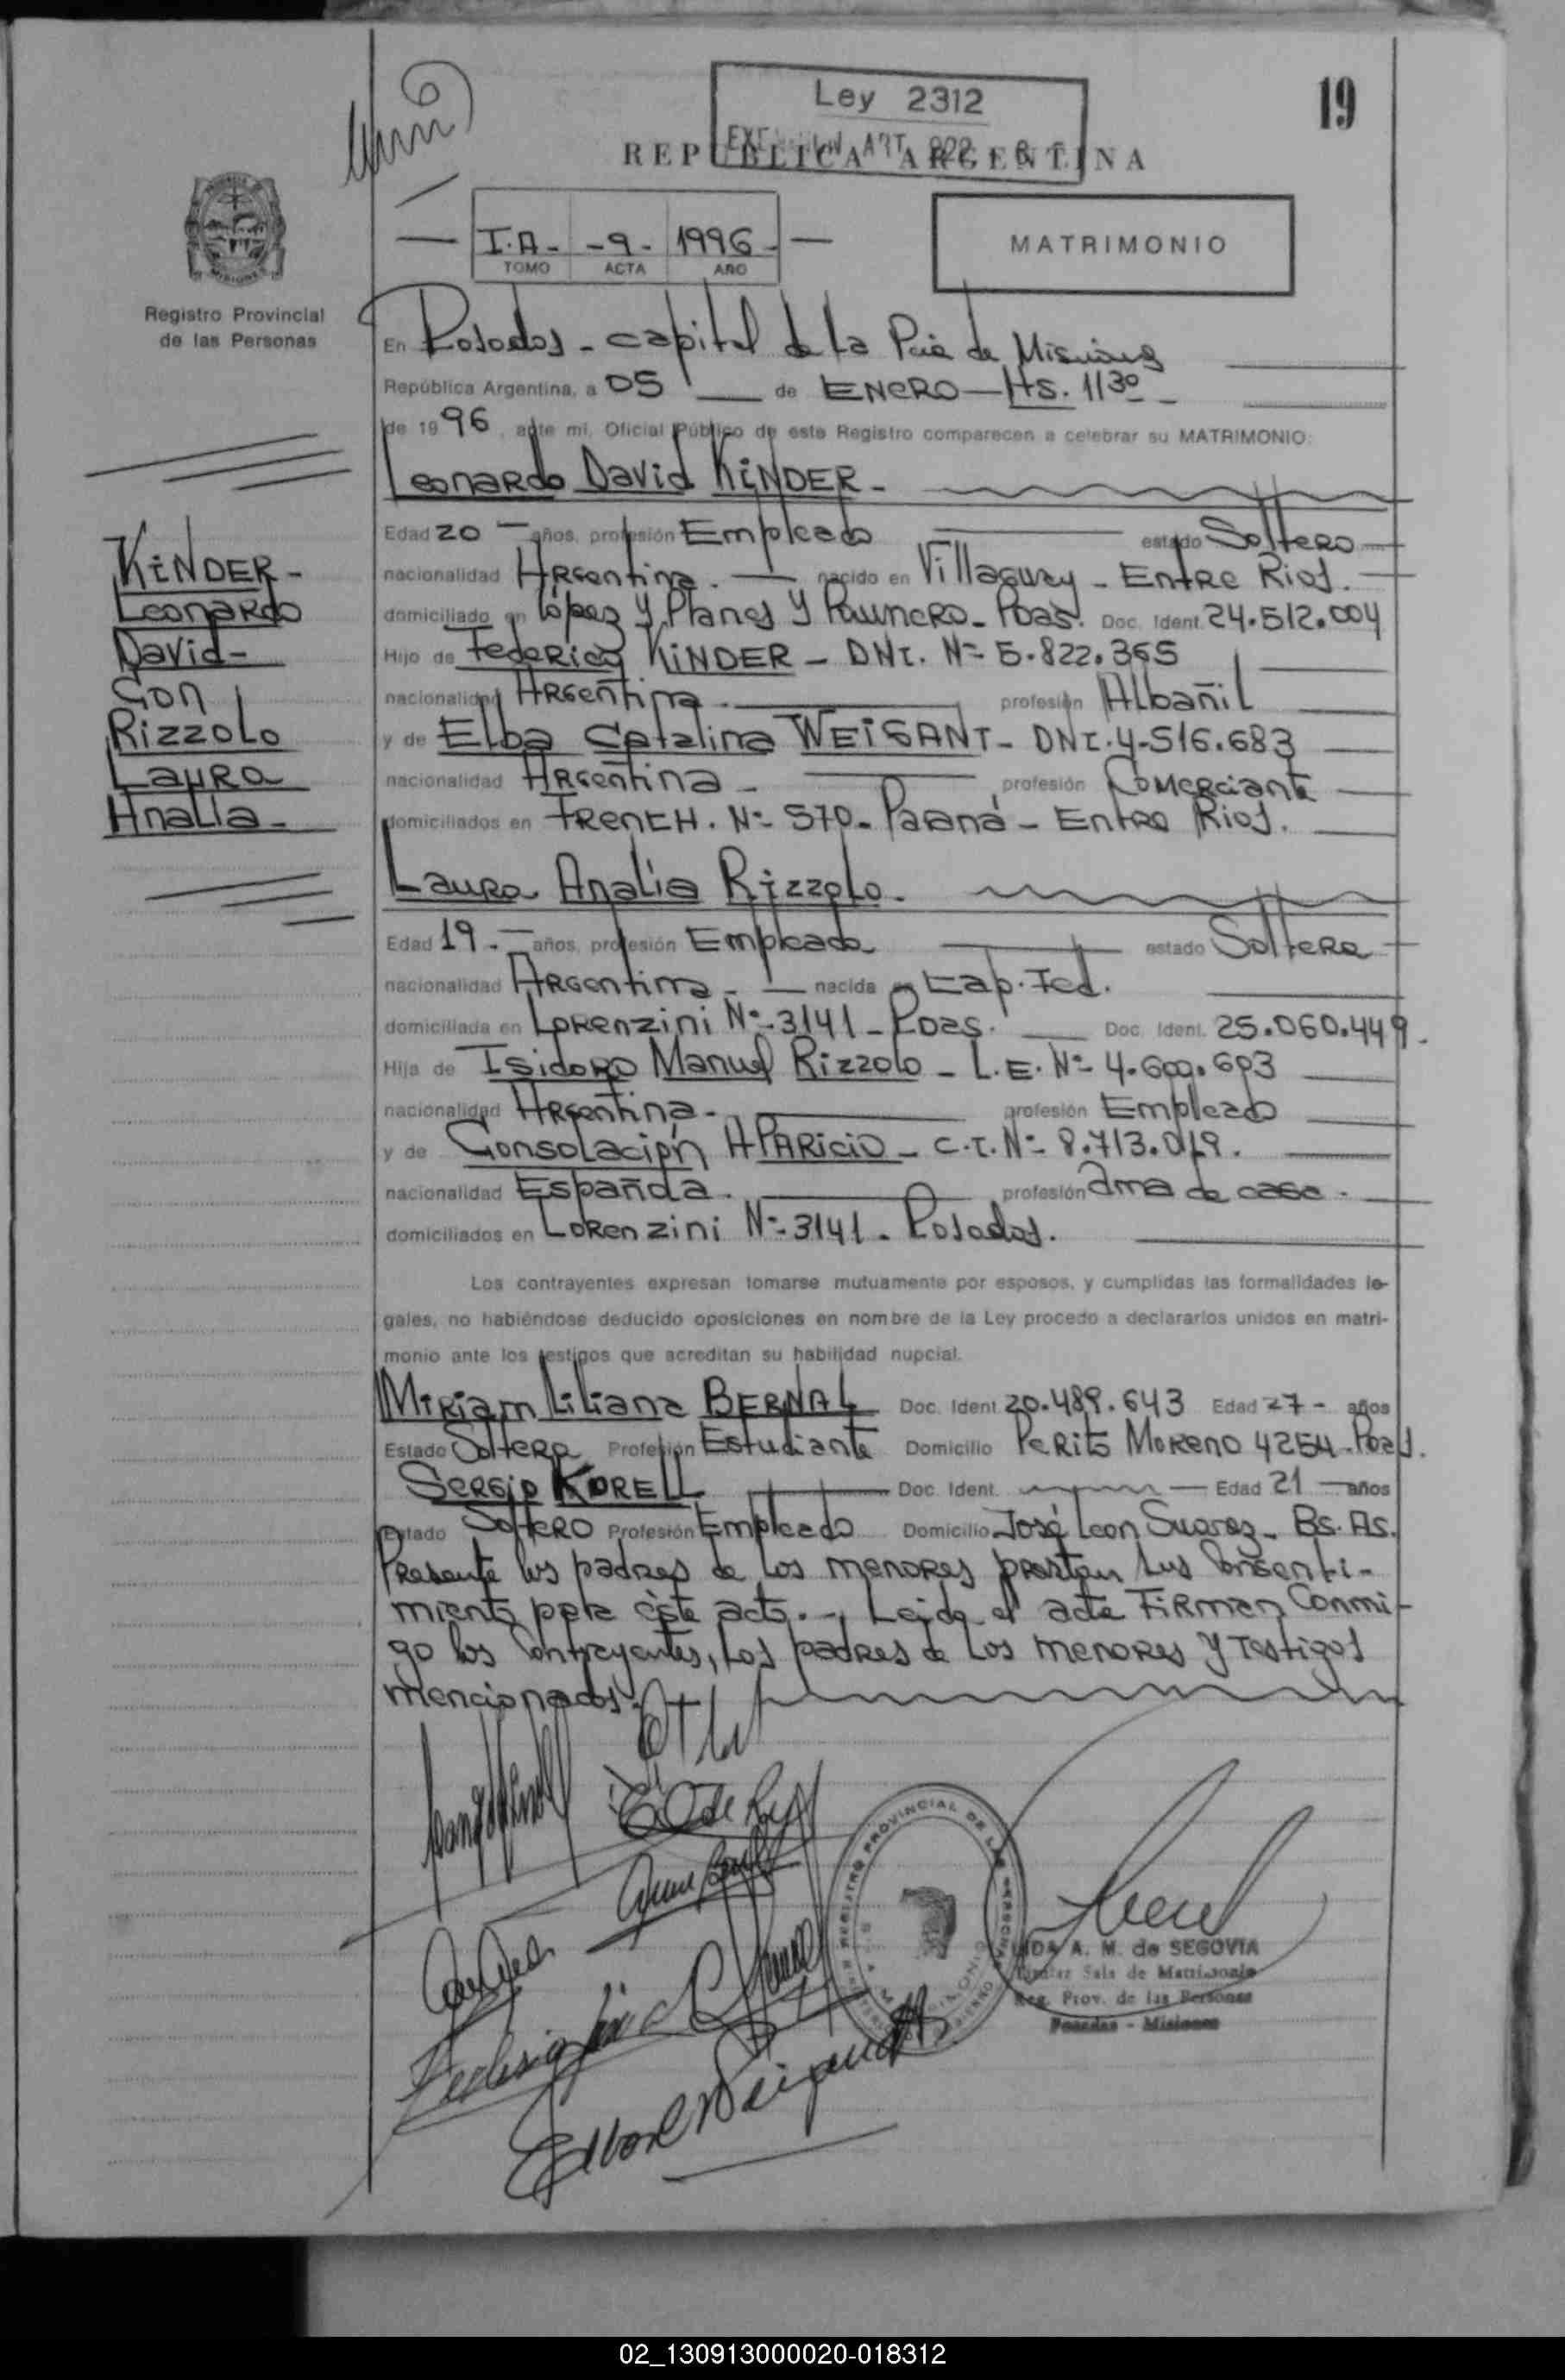 19
Ley 2312
ART.
REPUBLICA ARGENTINA
I.A- -9- 1996-
TOMO ACTA AÑO
MATRIMONIO
Registro Provincial
de las Personas
En Posadas - capital de la Pcia de Misiones
República Argentina, a 05 de ENERO - Hs. 1130
de 1996, ante mi, Oficial Público de este Registro comparecen a celebrar su MATRIMONIO:
Leonardo David KINDER-
Edad 20 - años, profesión Empleado estado Soltero
nacionalidad Argentina. nacido en Villaguay - Entre Rios.
domiciliado en López y Planes y Paunero - Pdas. Doc. Ident. 24.512.004
Hijo de Federico KINDER - DNI. Nº 5.822.365
nacionalidad Argentina. profesión Albañil
y de Elba Catalina WEISANT - DNI. 4-516.683
nacionalidad Argentina - profesión Comerciante
domiciliados en FRENCH. Nº 570 - Paraná - Entre Rios.
KINDER-
Leonardo
David-
Con
Rizzolo
Laura
Analia-
Laura Analia Rizzolo.
Edad 19.- años, profesión Empleada estado Soltera
nacionalidad Argentina - nacida en Cap. Fed.
domiciliada en Lorenzini Nº 3141 - Pdas. Doc. Ident. 25.060.449.
Hija de Isidoro Manuel Rizzolo - L.E. Nº 4.600.603
nacionalidad Argentina - profesión Empleado
y de Consolación APARICIO - C.I. Nº 8.713.019.
nacionalidad Española. profesión ama de casa.
domiciliados en Lorenzini Nº 3141. Posadas.
Los contrayentes expresan tomarse mutuamente por esposos, y cumplidas las formalidades le-
gales, no habiéndose deducido oposiciones en nombre de la Ley procedo a declararlos unidos en matri-
monio ante los testigos que acreditan su habilidad nupcial.
Miriam Liliana BERNAL Doc. Ident. 20.489.643 Edad 27 - años
Estado Soltera Profesión Estudiante Domicilio Perito Moreno 4254 - Pdas.
Sergio KORELL Doc. Ident. Edad 21 años
Estado Soltero Profesión Empleado Domicilio José Leon Suarez - Bs. As.
Presente los padres de los menores prestan sus consenti-
miento para éste acto.-, Leida el acta Firman Conmi-
go los Contrayentes, los padres de los menores y testigos
mencionados.
REGISTRO PROVINCIAL DE LAS PERSONAS
A. M. de SEGOVIA
Titular Sala de Matrimonio
Reg. Prov. de las Personas
Posadas - Misiones
02_130913000020-018312